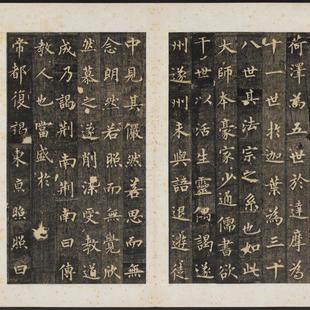 荷澤為五世於達摩為
十一世於迦葉為三十
八世其法宗之系也如此
大師本豪家少通儒書欲
干世以活生靈偶謁遂
州遂州未與語退遊徒
中見其儼然若思而無
念朗然若照而無覺欣
然慕之遂削染受教道
成乃謁荊南荊南曰傳
教人也當盛於
帝都復謁東京照照曰